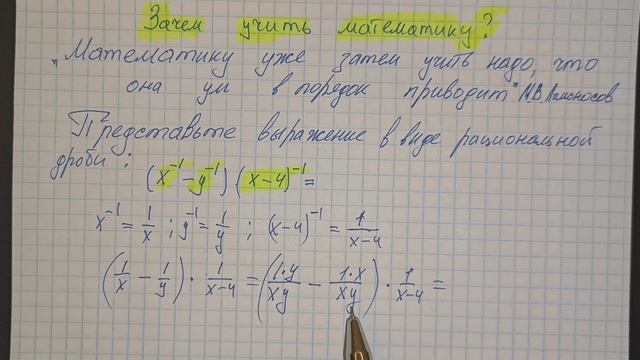 Зачем учить математику?
„Математику уже затем учить надо, что
она ум в порядок приводит" М.В. Ломоносов
Представьте выражение в виде рациональной
дроби:
(x⁻¹ − y⁻¹)(x−4)⁻¹ =
x⁻¹ = 1/x ; y⁻¹ = 1/y ; (x−4)⁻¹ = 1/(x−4)
(1/x − 1/y) · 1/(x−4) = (1·y/xy − 1·x/xy) · 1/(x−4) =